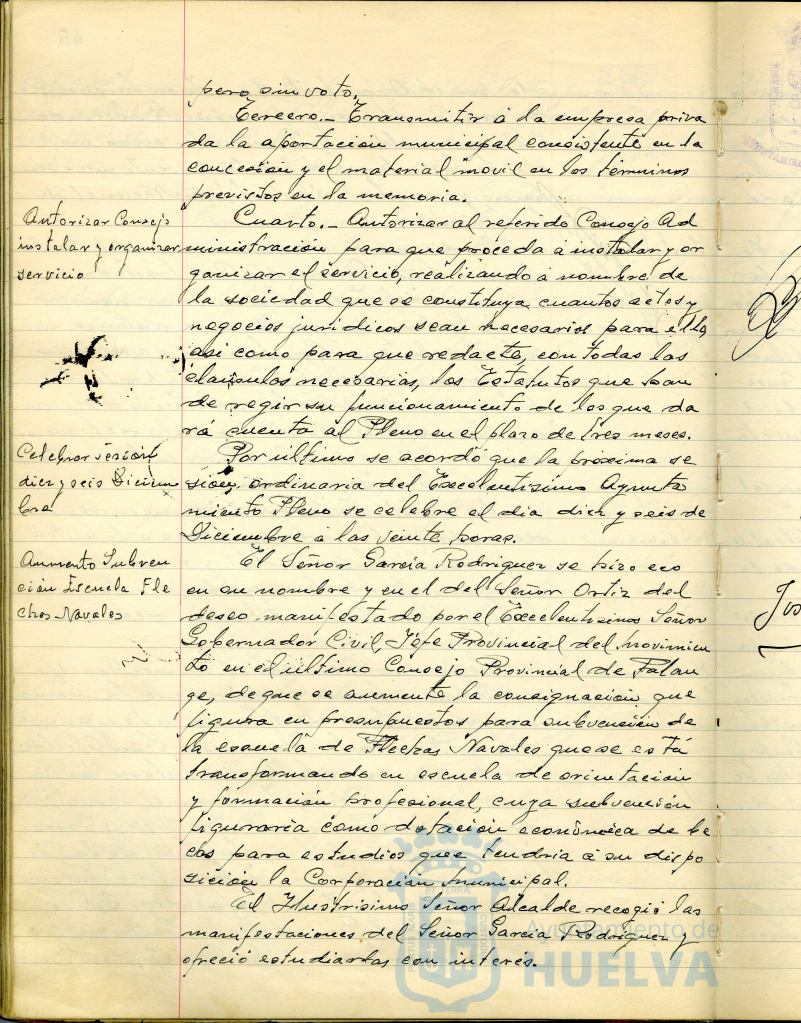 pero sin voto.
Tercero.- Transmitir á la empresa priva
da la aportación municipal consistente en la
concesión y el material movil en los términos
previstos en la memoria.
Autorizar Consejo
instalar y organizar
servicio
Cuarto.- Autorizar al referido Consejo Ad
ministración para que proceda á instalar y or
ganizar el servicio, realizando á nombre de
la sociedad que se constituya cuantos actos y
negocios jurídicos sean necesarios para ello,
asi como para que redacte, con todas las
cláusulas necesarias, los Estatutos que han
de regir su funcionamiento de los que da
rá cuenta al Pleno en el plazo de tres meses.
Celebrar sesión
diez y seis Diciem
bre
Por último se acordó que la próxima se
sión ordinaria del Excelentísimo Ayunta
miento Pleno se celebre el dia diez y seis de
Diciembre á las veinte horas.
Aumento Subven
ción Escuela Fle
chas Navales
El Señor García Rodriguez se hizo eco
en su nombre y en el del Señor Ortiz del
deseo manifestado por el Excelentisimo Señor
Gobernador Civil Jefe Provincial del Movimien
to en el último Consejo Provincial de Falan
ge, de que se aumente la consignación que
figura en presupuestos para subvención de
la escuela de Flechas Navales que se está
transformando en escuela de orientación
y formación profesional, cuya subvención
figuraría como dotación económica de be
cas para estudios que tendria á su dispo
sición la Corporación municipal.
El Ilustrísimo Señor Alcalde recogió las
manifestaciones del Señor García Rodriguez y
ofreció estudiarlas con interés.
Ayuntamiento de
HUELVA